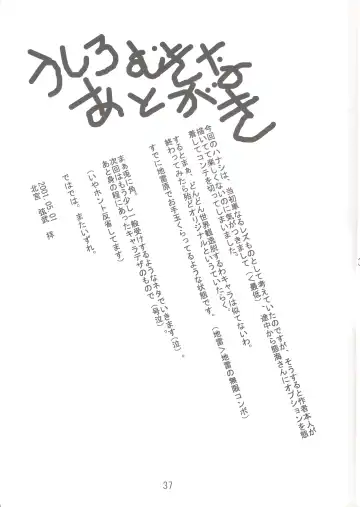 うしろむきな
あとがき
今回のハナシは、当初単なるレズものとして考えていたのですが、そうすると作者本人が
描いてて楽しくないのに気がつきまして（＜最低）、途中から熊海さんにオプションを態
着してコンテを切ってしまいました。
するとまぁ、どんどん世界観逸脱するわキャラは似てないわ。
終わってみたら殆どオリジナルというていたらく。
すでに地雷漁ってお手玉くらってるような状態です。（地雷＞地雷の無限コンボ）
まぁ兎に角。
次回はもう少し一般受けするようなネタでいきます（泣）
あと身の程にあったキャラデザのもので（号泣）
（いやホント反省してます）
ではでは、またいずれ。
2001.05.01
北宮 弦武 拝
37